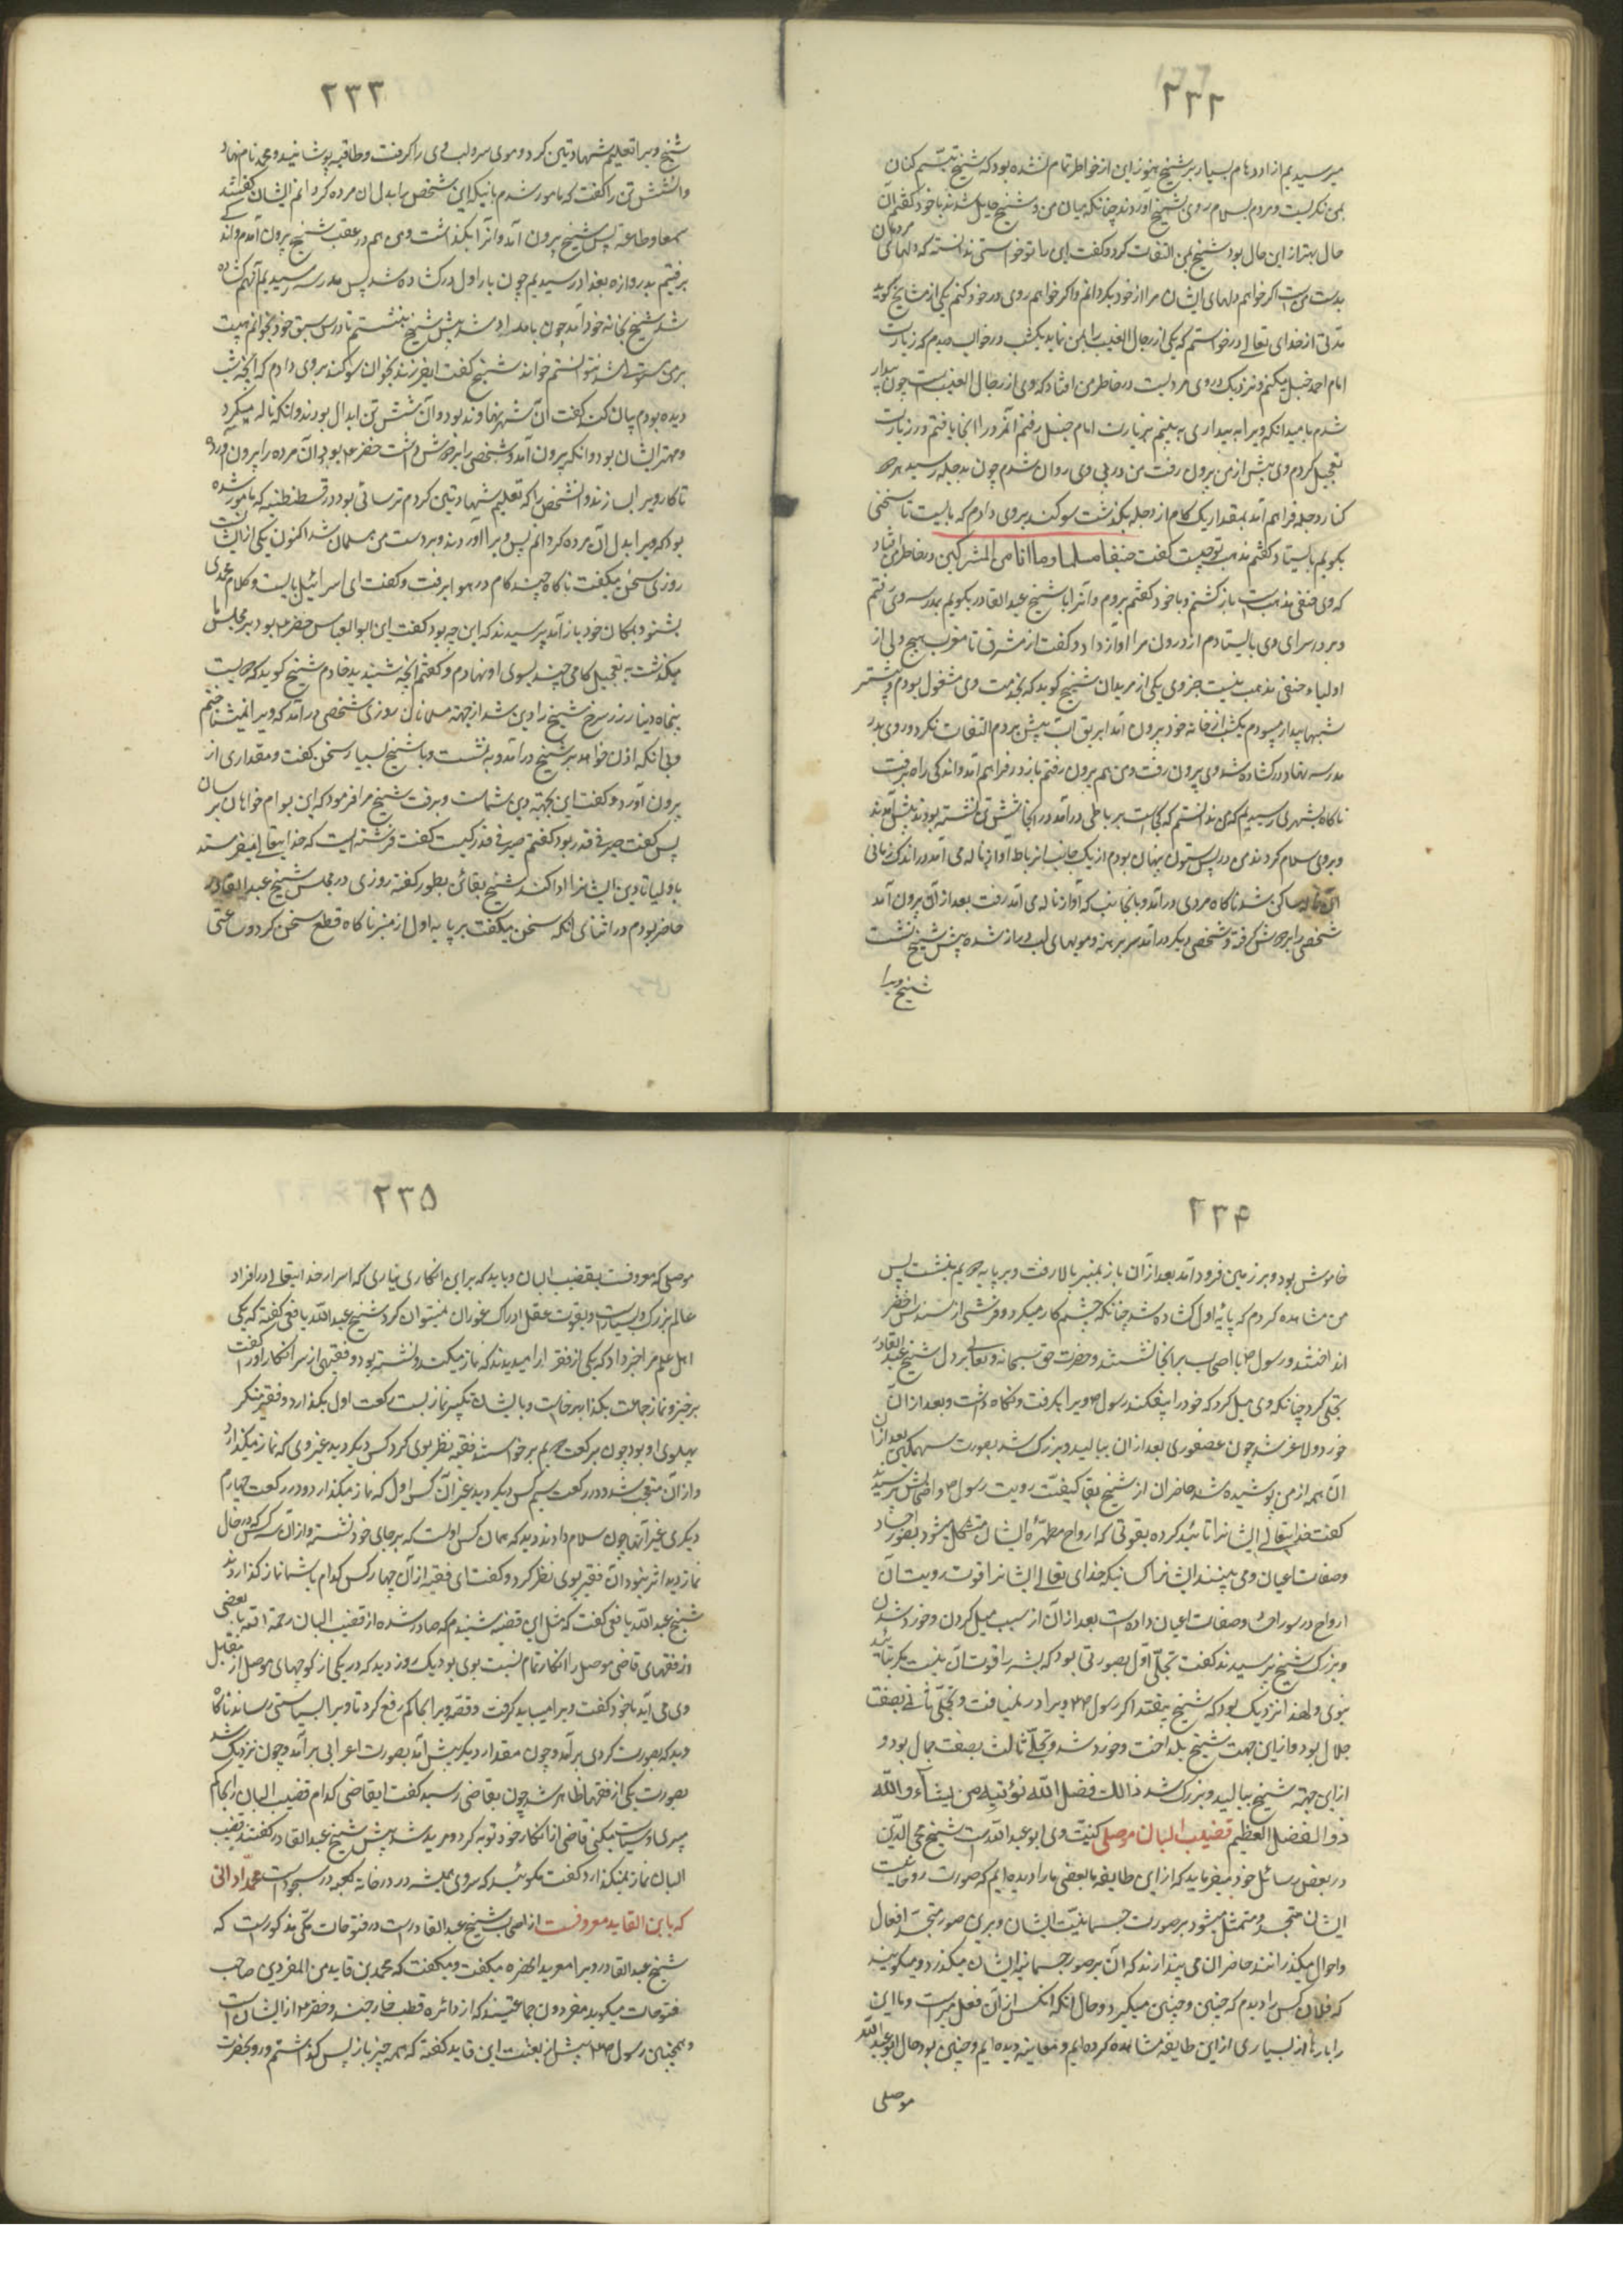 ۲۳۲
میرسیدیم از ازدهام بسیار بر شیخ هنوز این از خواطر تمام نشده بود که شیخ تبسم کنان
بمن نکریست و مردم بسلام روی بشیخ آوردند چنانکه میان من و شیخ حایل شدند با خود گفتم آن
حال بهتر از این حال بود شیخ بمن التفات کرد و گفت این را تو خواستی ندانسته که دلهای مردمان
بدست من است اگر خواهم دلهای ایشان مرا از خود بگردانم و اگر خواهم روی در خود کنم یکی از مشایخ گوید
مدتی از خدای تعالی درخواستم که یکی از رجال الغیب را بمن نماید یکشب در خواب دیدم که زیارت
امام احمد حنبل میکنم و نزدیک وی مردیست در خاطر من افتاد که وی از رجال الغیب است چون بیدار
شدم بامید آنکه ویرا به بیداری به بینم بزیارت امام حنبل رفتم آنمرد را انجا یافتم در زیارت
تعجیل کردم وی پیش از من بیرون رفت من در پی وی روان شدم چون بدجله رسید هر دو
کنار دجله فراهم آمد بمقدار یک کام از دجله بگذشت سوکند بروی دادم که بایست تا سخنی
بگویم بایستاد گفتم مذهب تو چیست گفت حنیفا مسلما و ما انا من المشرکین در خاطر من افتاد
که وی حنفی مذهب است باز گشتم و با خود گفتم بروم و آنرا با شیخ عبد القادر بگویم بمدرسه وی رفتم
و بر در سرای وی بایستادم از درون مرا آواز داد و گفت از مشرق تا مغرب هیچ ولی از
اولیاء حنفی مذهب نیست جز وی یکی از مریدان شیخ گوید که بخدمت وی مشغول بودم و بیشتر
شبها بیدار میبودم یکشب از خانه خود بیرون آمد ابریق آب پیش بردم التفات نکرد و روی بدر
مدرسه نهاد در کشاده شد وی بیرون رفت و من هم بیرون رفتم باز در فراهم آمد و اندکی راه برفت
ناگاه بشهری رسیدیم که من ندانستم که کجاست بر رباطی درآمد در آنجا شش تن نشسته بودند پیش آمدند
و بروی سلام کردند من در پس ستون پنهان بودم از یک جانب از رباط آواز ناله می آمد در اندک زمانی
آن ناله ساکن شد ناگاه مردی درآمد و بانجانب که آواز ناله می آمد رفت بعد از آن بیرون آمد
شخصی را بر دوش گرفته و شخصی دیگر درآمد سر برهنه و مویهای لب دراز شده پیش شیخ نشست
شیخ ویرا
۲۳۳
شیخ ویرا تعلیم شهادتین کرد و موی سر و لب وی را گرفت و طاقیه پوشانید و محمد نام نهاد
و آن شش تن را گفت که مامور شدم بانیکه این شخص را بدل آن مرده کردانم ایشان گفتند
سمعا و طاعة پس شیخ بیرون آمد و آنرا بگذاشت و من هم در عقب شیخ بیرون آمدم و اندکی
برفتیم بدروازه بغداد رسیدیم چون بار اول در کشاده شد پس بمدرسه رسیدیم آنهم کشاده
شد شیخ بخانه خود آمد چون بامداد شد پیش شیخ بنشستم تا درس سبق خود بخوانم هیبت
بر من مستولی شد نتوانستم خواند شیخ گفت ای فرزند بخوان سوکند بروی دادم که آنچه شب
دیده بودم بیان کند گفت آن شهر نهاوند بود و آن شش تن ابدال بودند و آنکه ناله میکرد
و مهتر ایشان بود و آنکه بیرون آمد و شخصی را بر دوش داشت خضر ع بود آن مرده را بیرون آورد
تا کار ویرا بسازند و آنشخص را که تعلیم شهادتین کردم ترسائی بود در قسطنطنیه که مامور شده
بودم که ویرا بدل آن مرده کردانم پس ویرا آوردند و بر دست من مسلمان شد اکنون یکی از ایشان است
روزی سخن میگفت ناگاه چند گام در هوا برفت و گفت ای اسرائیلی بایست و کلام محمدی
بشنو و بمکان خود باز آمد پرسیدند که این چه بود گفت این ابوالعباس خضر ع بود بر مجلس ما
میگذشت به تعجیل گامی چند بسوی او نهادم و گفتم آنچه شنیدید خادم شیخ گوید که دویست
پنجاه دینار زر سرخ شیخ را دین شد از جهته مهمانان روزی شخصی درآمد که ویرا نمیشناختم
و بی آنکه اذن خواهد بر شیخ درآمد و به نشست و با شیخ بسیار سخن گفت و مقداری زر
بیرون آورد و گفت این بجهته دین شماست و برفت شیخ مرا فرمود که این بوام خواهان برسان
پس گفت صیرفی قدر بود گفتم صیرفی قدر کیست گفت فرشته ایست که خدایتعالی میفرستد
باولیا تا دین ایشانرا ادا کند شیخ بقا بن بطو گفته روزی در مجلس شیخ عبد القادر
حاضر بودم در اثنای آنکه سخن میگفت بر پایه اول از منبر ناگاه قطع سخن کرد و ساعتی
۲۳۴
خاموش بود و بر زمین فرود آمد بعد از آن باز بمنبر بالا رفت و بر پایه دویم بنشست پس
من مشاهده کردم که پایه اول کشاده شد چنانکه چشم کار میکرد و فرشی از سندس اخضر
انداختند و رسول ص با اصحاب بر آنجا نشستند و حضرت حق سبحانه و تعالی بر دل شیخ عبد القادر
تجلی کرد چنانکه وی میل کرد که خود را بیفکند رسول ص ویرا بگرفت و نگاه داشت و بعد از آن
خورد و لاغر شد چون عصفوری بعد از آن ببالید و بزرگ شد بصورت سهمگین بعد از آن
آن همه از من پوشیده شد حاضران از شیخ بقا کیفیت رویت رسول ص و اصحابش پرسیدند
گفت خدایتعالی ایشانرا تائید کرده بقوتی که ارواح مطهره ایشان متشکل میشود بصور اجساد
و صفات اعیان و می بینند ایشانرا کسانیکه خدای تعالی ایشانرا قوت رویت آن
ارواح در صور اجساد و صفات اعیان داده است بعد از آن از سبب میل کردن و خورد شدن
و بزرگ شیخ پرسیدند گفت تجلی اول بصورتی بود که بشر را قوت آن نیست مگر بتائید
نبوی و لهذا نزدیک بود که شیخ بیفتد اگر رسول ص ویرا در نمی یافت و تجلی ثانی بصفت
جلال بود و از این جهت شیخ بگداخت و خورد شد و تجلی ثالث بصفت جمال بود و
از این جهته شیخ ببالید و بزرگ شد ذالک فضل اللّه نؤتیه من یشآء و اللّه
ذو الفضل العظیم قضیب البان موصلی کنیت وی ابو عبد اللّه است شیخ محی الدین
در بعض رسائل خود میفرماید که از این طایفه بعضی ما را دیده ایم که صورت روحانیت
ایشان متجسد و متمثل میشود بر صورت جسمانیت ایشان و برین صور متجسد افعال
و احوال میگذرانند حاضران می پندارند که آن بر صور جسمانیه ایشان میگذرد و میگویند
که فلان کس را دیدم که چنین و چنین میکرد و حال آنکه آنکس از آن فعل مبراست و ما این
را بارها از بسیاری از این طایفه مشاهده کرده ایم و معاینه دیده ایم و چنین بود حال ابو عبد اللّه
موصلی
۲۳۵
موصلی که معروفست بقضیب البان و باید که بر این انکاری نیاری که اسرار خدایتعالی در افراد
عالم بزرگ و بسیار است و بقوت عقل ادراک غور آن نمیتوان کرد شیخ عبد اللّه یافعی گفته که یکی
اهل علم مرا خبر داد که یکی از فقرا را میدیدند که نماز میکند و نشسته بود و فقیهی از سر انکار او را گفت
برخیز و نماز جماعت بگذار برخاست و با ایشان تکبیر نماز بست رکعت اول بگذارد و فقیه منکر
پهلوی او بود چون برکعت دویم برخواستند فقیه نظر بوی کرد کس دیگر دید غیر وی که نماز میگذارد
و از آن متعجب شد و در رکعت سیم کس دیگر دید غیر آن کس اول که نماز میگذارد و در رکعت چهارم
دیگری غیر آنها چون سلام دادند دید که همان کس اولست که بر جای خود نشسته و از آن سه کس که در حال
نماز دید اثر نبود آن فقیر بوی نظر کرد و گفت ای فقیه از آن چهار کس کدام با شما نماز گذاردند
شیخ عبد اللّه یافعی گفت که مثل این قضیه شنیدم که صادر شده از قضیب البان رحمة اللّه با بعضی
از فقهای قاضی موصل را انکار تمام نسبت بوی بود یک روز دید که در یکی از کوچهای موصل از مقابل
وی می آید با خود گفت ویرا میباید گرفت و قصه ویرا بحاکم رفع کرد تا ویرا سیاستی رساند ناگاه
دید که بصورت کردی برآمد و چون مقدار دیگر پیش آمد بصورت اعرابی برآمد و چون نزدیک شد
بصورت یکی از فقها ظاهر شد چون بقاضی رسید گفت ایقاضی کدام قضیب البان را بحاکم
میبری و سیاست میکنی قاضی از انکار خود توبه کرد و مرید شد پیش شیخ عبد القادر گفتند قضیب
البان نماز نمیگذارد گفت مگوئید که سر وی همیشه در در خانه کعبه در سجود است محمد اوانی
که بابن القاید معروفست از اصحاب شیخ عبد القادر است در فتوحات مکی مذکور است که
شیخ عبد القادر ویرا معربد الحضره میگفت و میگفت که محمد بن قاید من المفردین صاحب
فتوحات میگوید مفردون جماعتیند که از دائره قطب خارجند و خضر ع از ایشان است
و همچنین رسول ص پیش از بعثت ابن قاید گفته که همه چیز باز پس گذاشتم و رو بحضرت